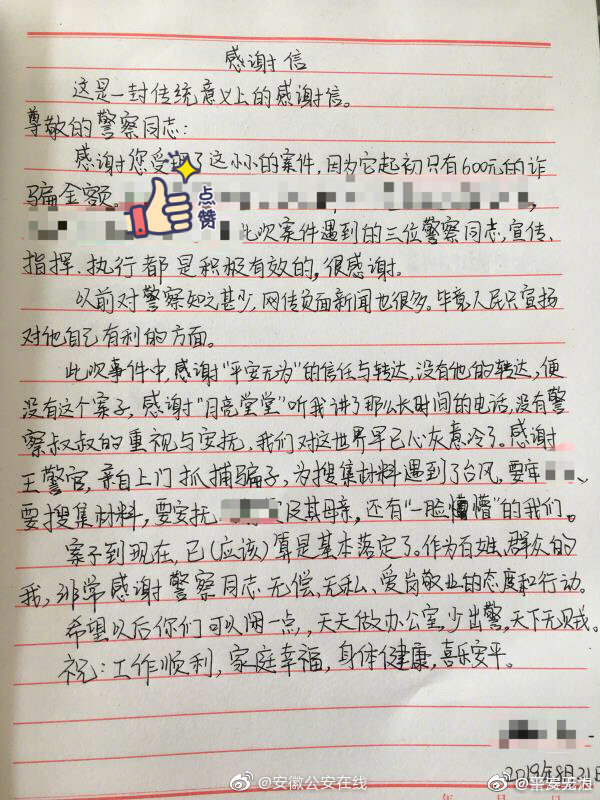 感谢信
这是一封传统意义上的感谢信。
尊敬的警察同志:
感谢您受理了这小小的案件,因为它起初只有600元的诈
骗金额。
点赞
此次案件遇到的三位警察同志,宣传、
指挥、执行都是积极有效的,很感谢。
以前对警察知之甚少,网传负面新闻也很多。毕竟人民只宣扬
对他自己有利的方面。
此次事件中,感谢"平安无为"的信任与转达,没有他的转达,便
没有这个案子,感谢"月亮堂堂"听我讲了那么长时间的电话,没有警
察叔叔的重视与安抚,我们对这世界早已心灰意冷了。感谢
王警官,亲自上门抓捕骗子,为搜集材料遇到了台风,要牢
要搜集材料,要安抚 及其母亲,还有"一脸懵懵"的我们。
案子到现在,已(应该)算是基本落定了。作为百姓、群众的
我,非常感谢警察同志无偿、无私、爱岗敬业的态度和行动。
希望以后你们可以闲一点,天天做办公室,少出警,天下无贼。
祝:工作顺利,家庭幸福,身体健康,喜乐安平。
2019年8月21日
@安徽公安在线
@平安无为
年 月 日